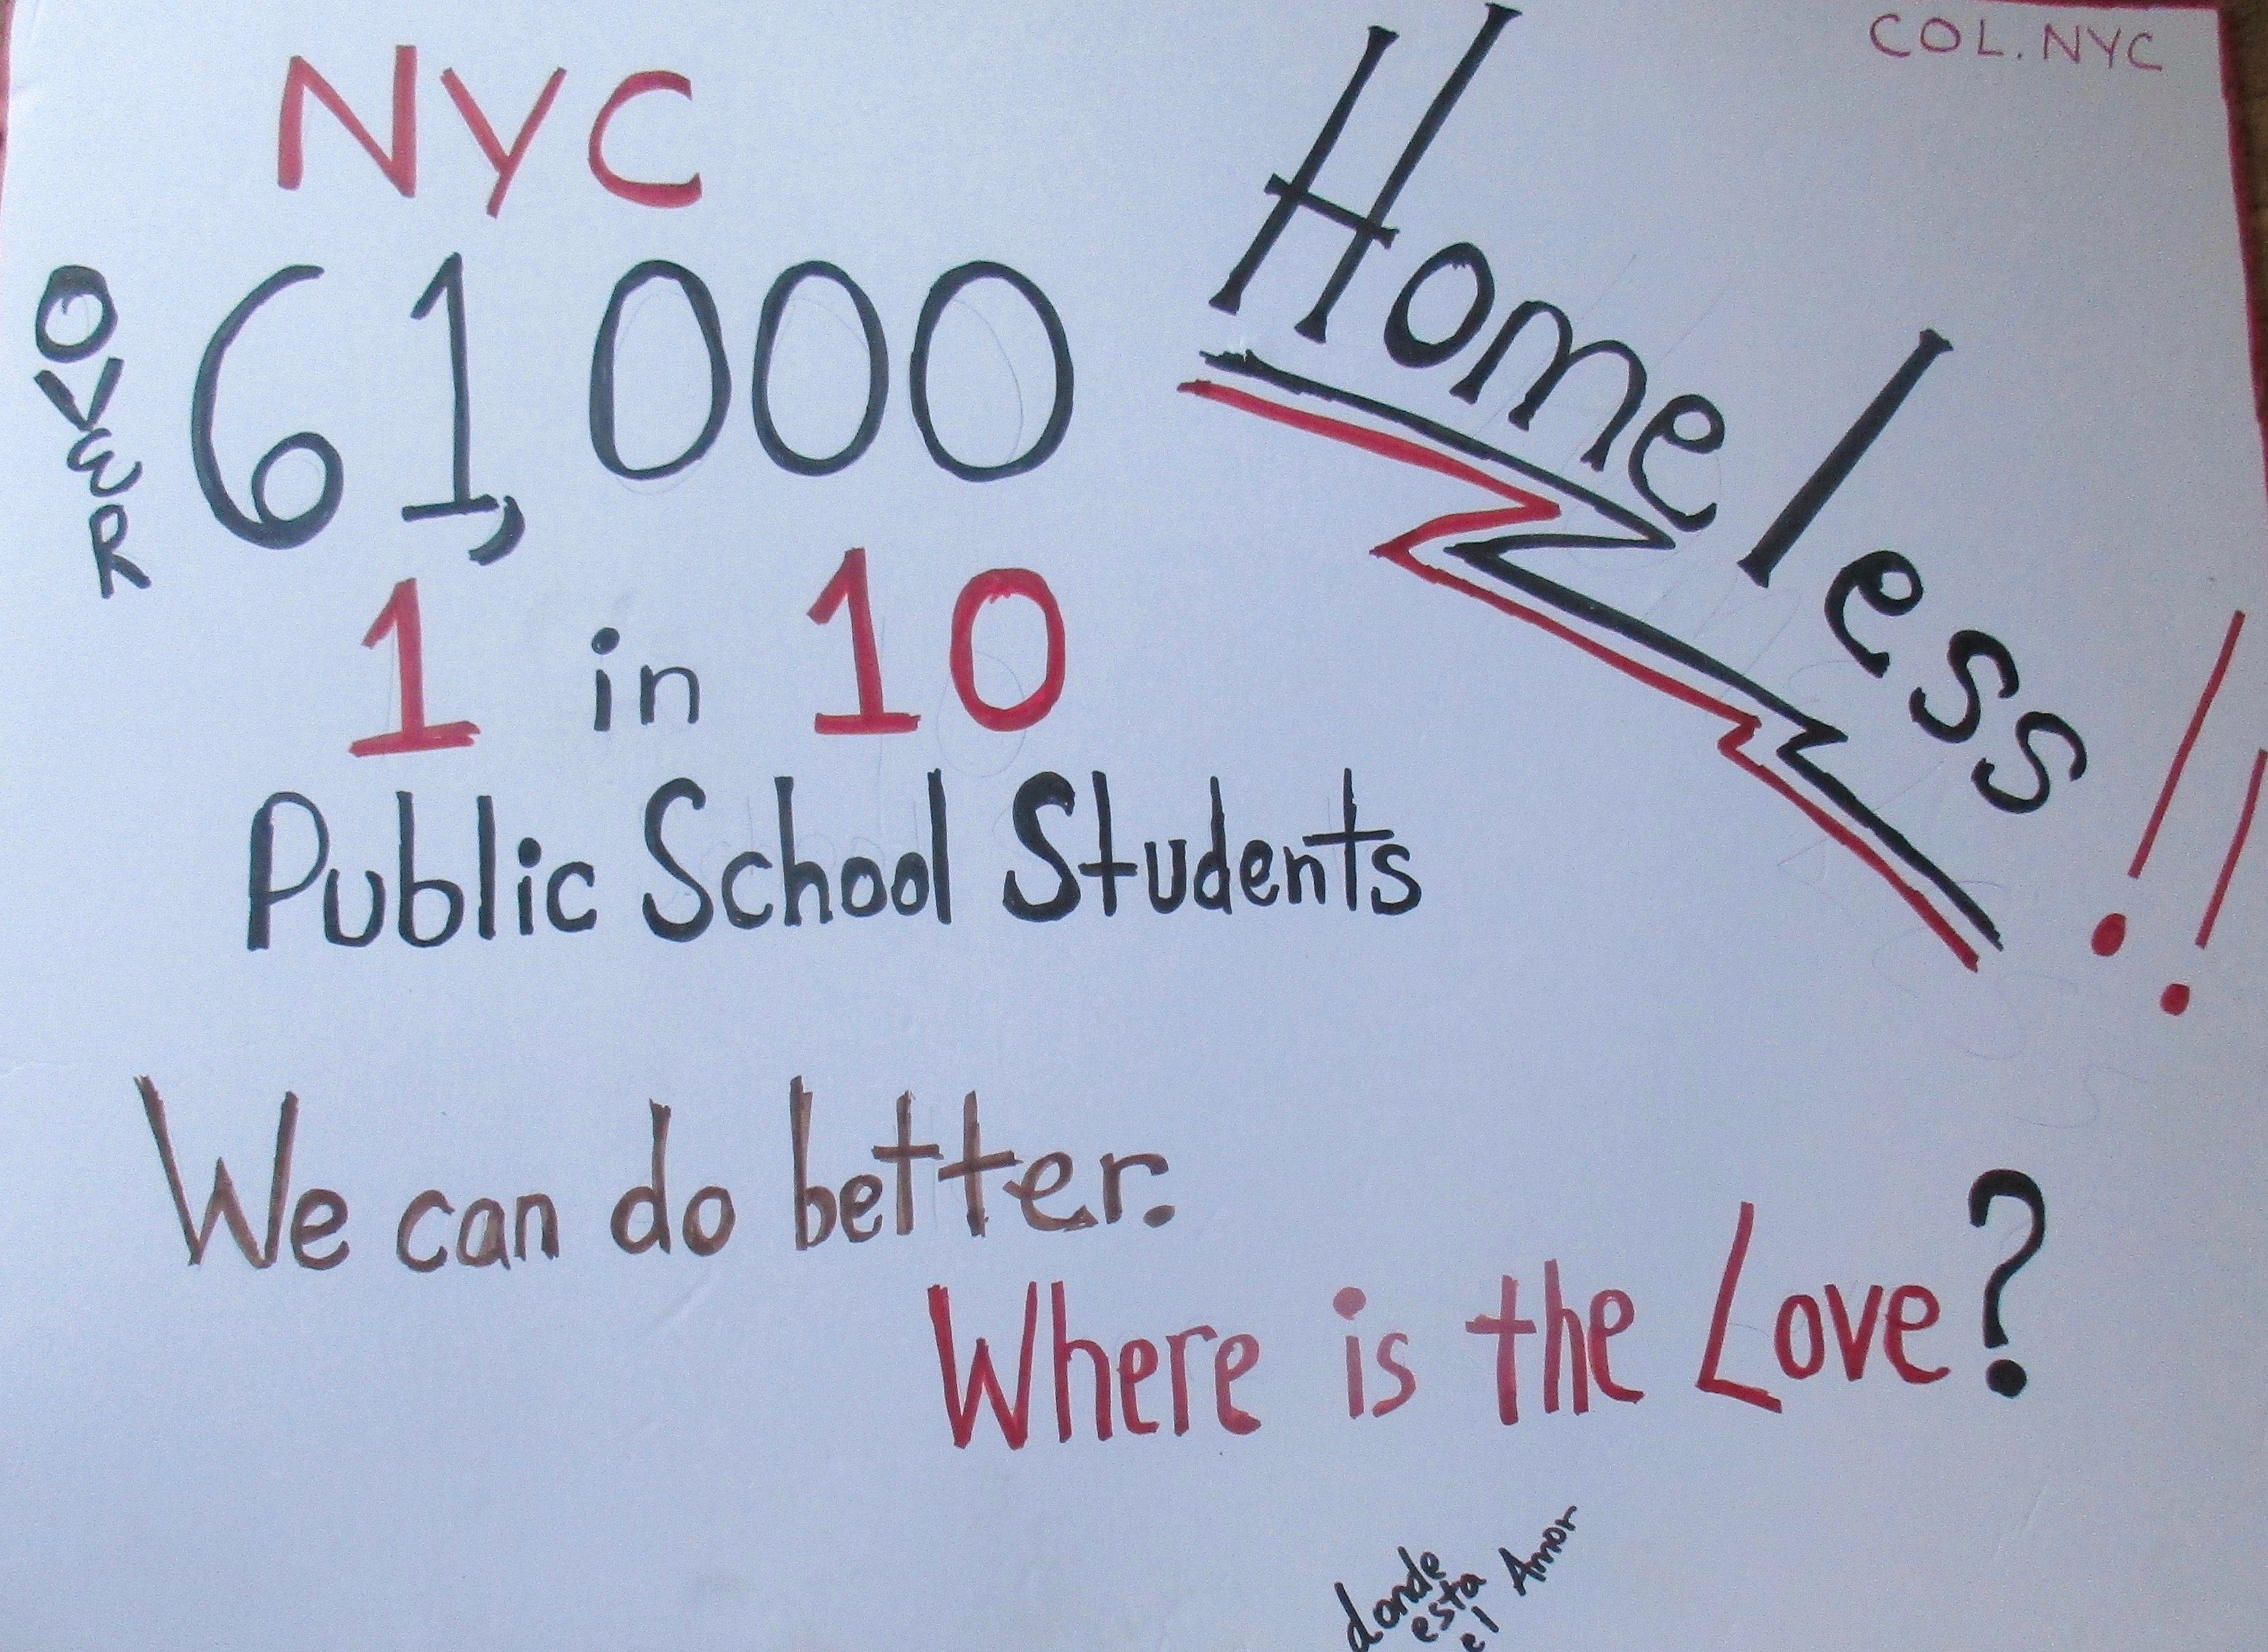 COL.NYC
NYC
OVER
61,000
Homeless!!
1 in 10
Public School Students
We can do better.
Where is the Love?
donde
esta
el Amor